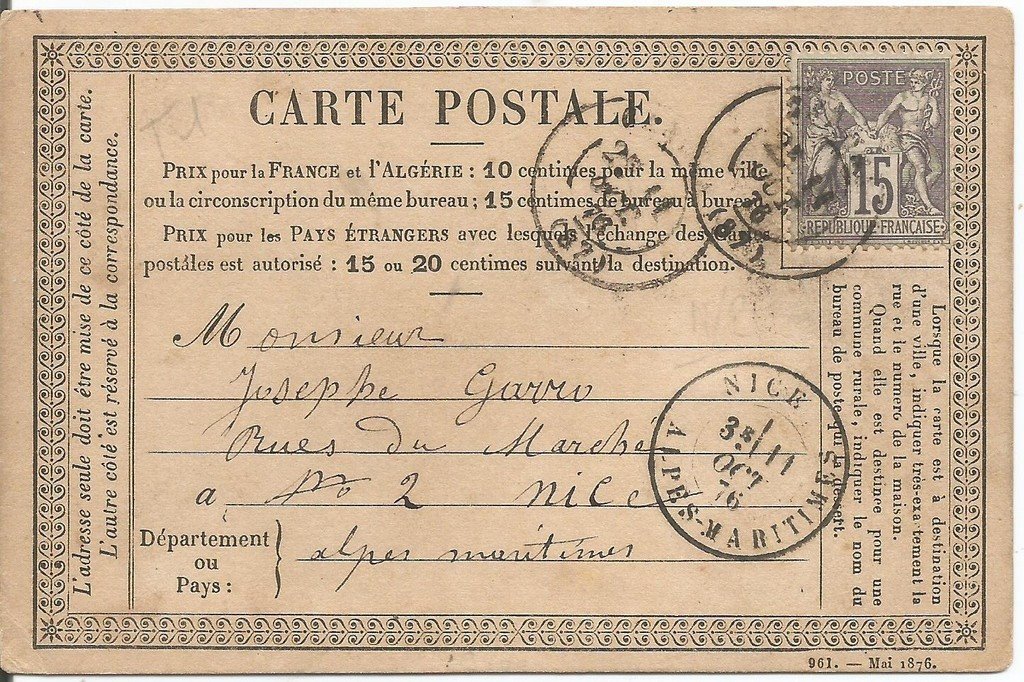 CARTE POSTALE.
POSTE
15
REPUBLIQUE FRANÇAISE
PRIX pour la FRANCE et l'ALGÉRIE : 10 centimes pour la même ville
ou la circonscription du même bureau ; 15 centimes de bureau à bureau.
PRIX pour les PAYS ÉTRANGERS avec lesquels l'échange des cartes
postales est autorisé : 15 ou 20 centimes suivant la destination.
Monsieur
Josephe Garro
Rues du Marché
a No 2 Nice
Département
ou
Pays :
alpes maritimes
NICE
3E/ 11
OCT
76
ALPES-MARITIMES
L'adresse seule doit être mise de ce côté de la carte.
L'autre côté est réservé à la correspondance.
Lorsque la carte est à destination
d'une ville, indiquer très-exactement la
rue et le numéro de la maison.
Quand elle est destinée pour une
commune rurale, indiquer le nom du
bureau de poste qui la dessert.
961. — Mai 1876.